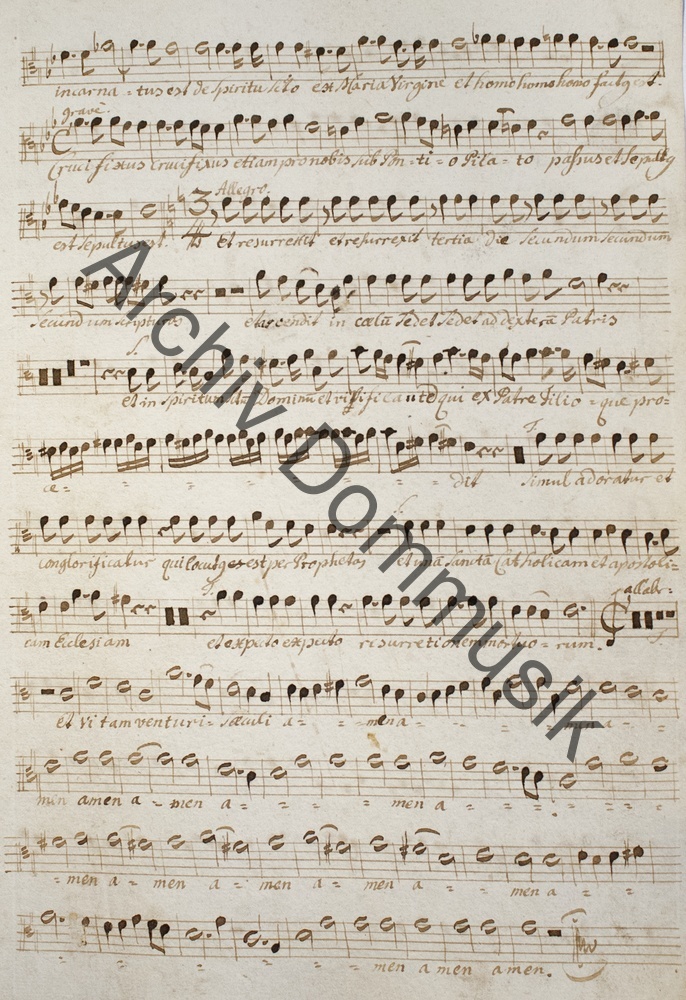 incarna - tus est de Spiritu Scto ex Maria Virgine et homo homo homo factq est.
grave.
Crucifixus Crucifixus etiam pro nobis sub Pon - ti - o Pila - to passus et Sepultq
Allegro.
3
4
est Sepultus est. Et resurrexit et resurrexit tertia die Secundum Secundum
Secundum scripturas et ascendit in coelu Sedet Sedet ad dexteră Patris
et in Spiritum Dominu et vivificante qui ex Patre Filio - que pro=
ce - dit simul adoratur et
conglorificatur qui locutq est per Prophetas et unâ Sanctâ Catholicam et apostoli-
allabr:
cam Ecclesiam et expecto expecto resurrectionem mortuo - rum.
et Vitam venturi - saeculi a - - mena - - - mena -
men amen a - men a - - - - men a - - - - -
- men a - men a - men a - men a - - men a - -
- - - - - - men amen amen.
Archiv Dommusik